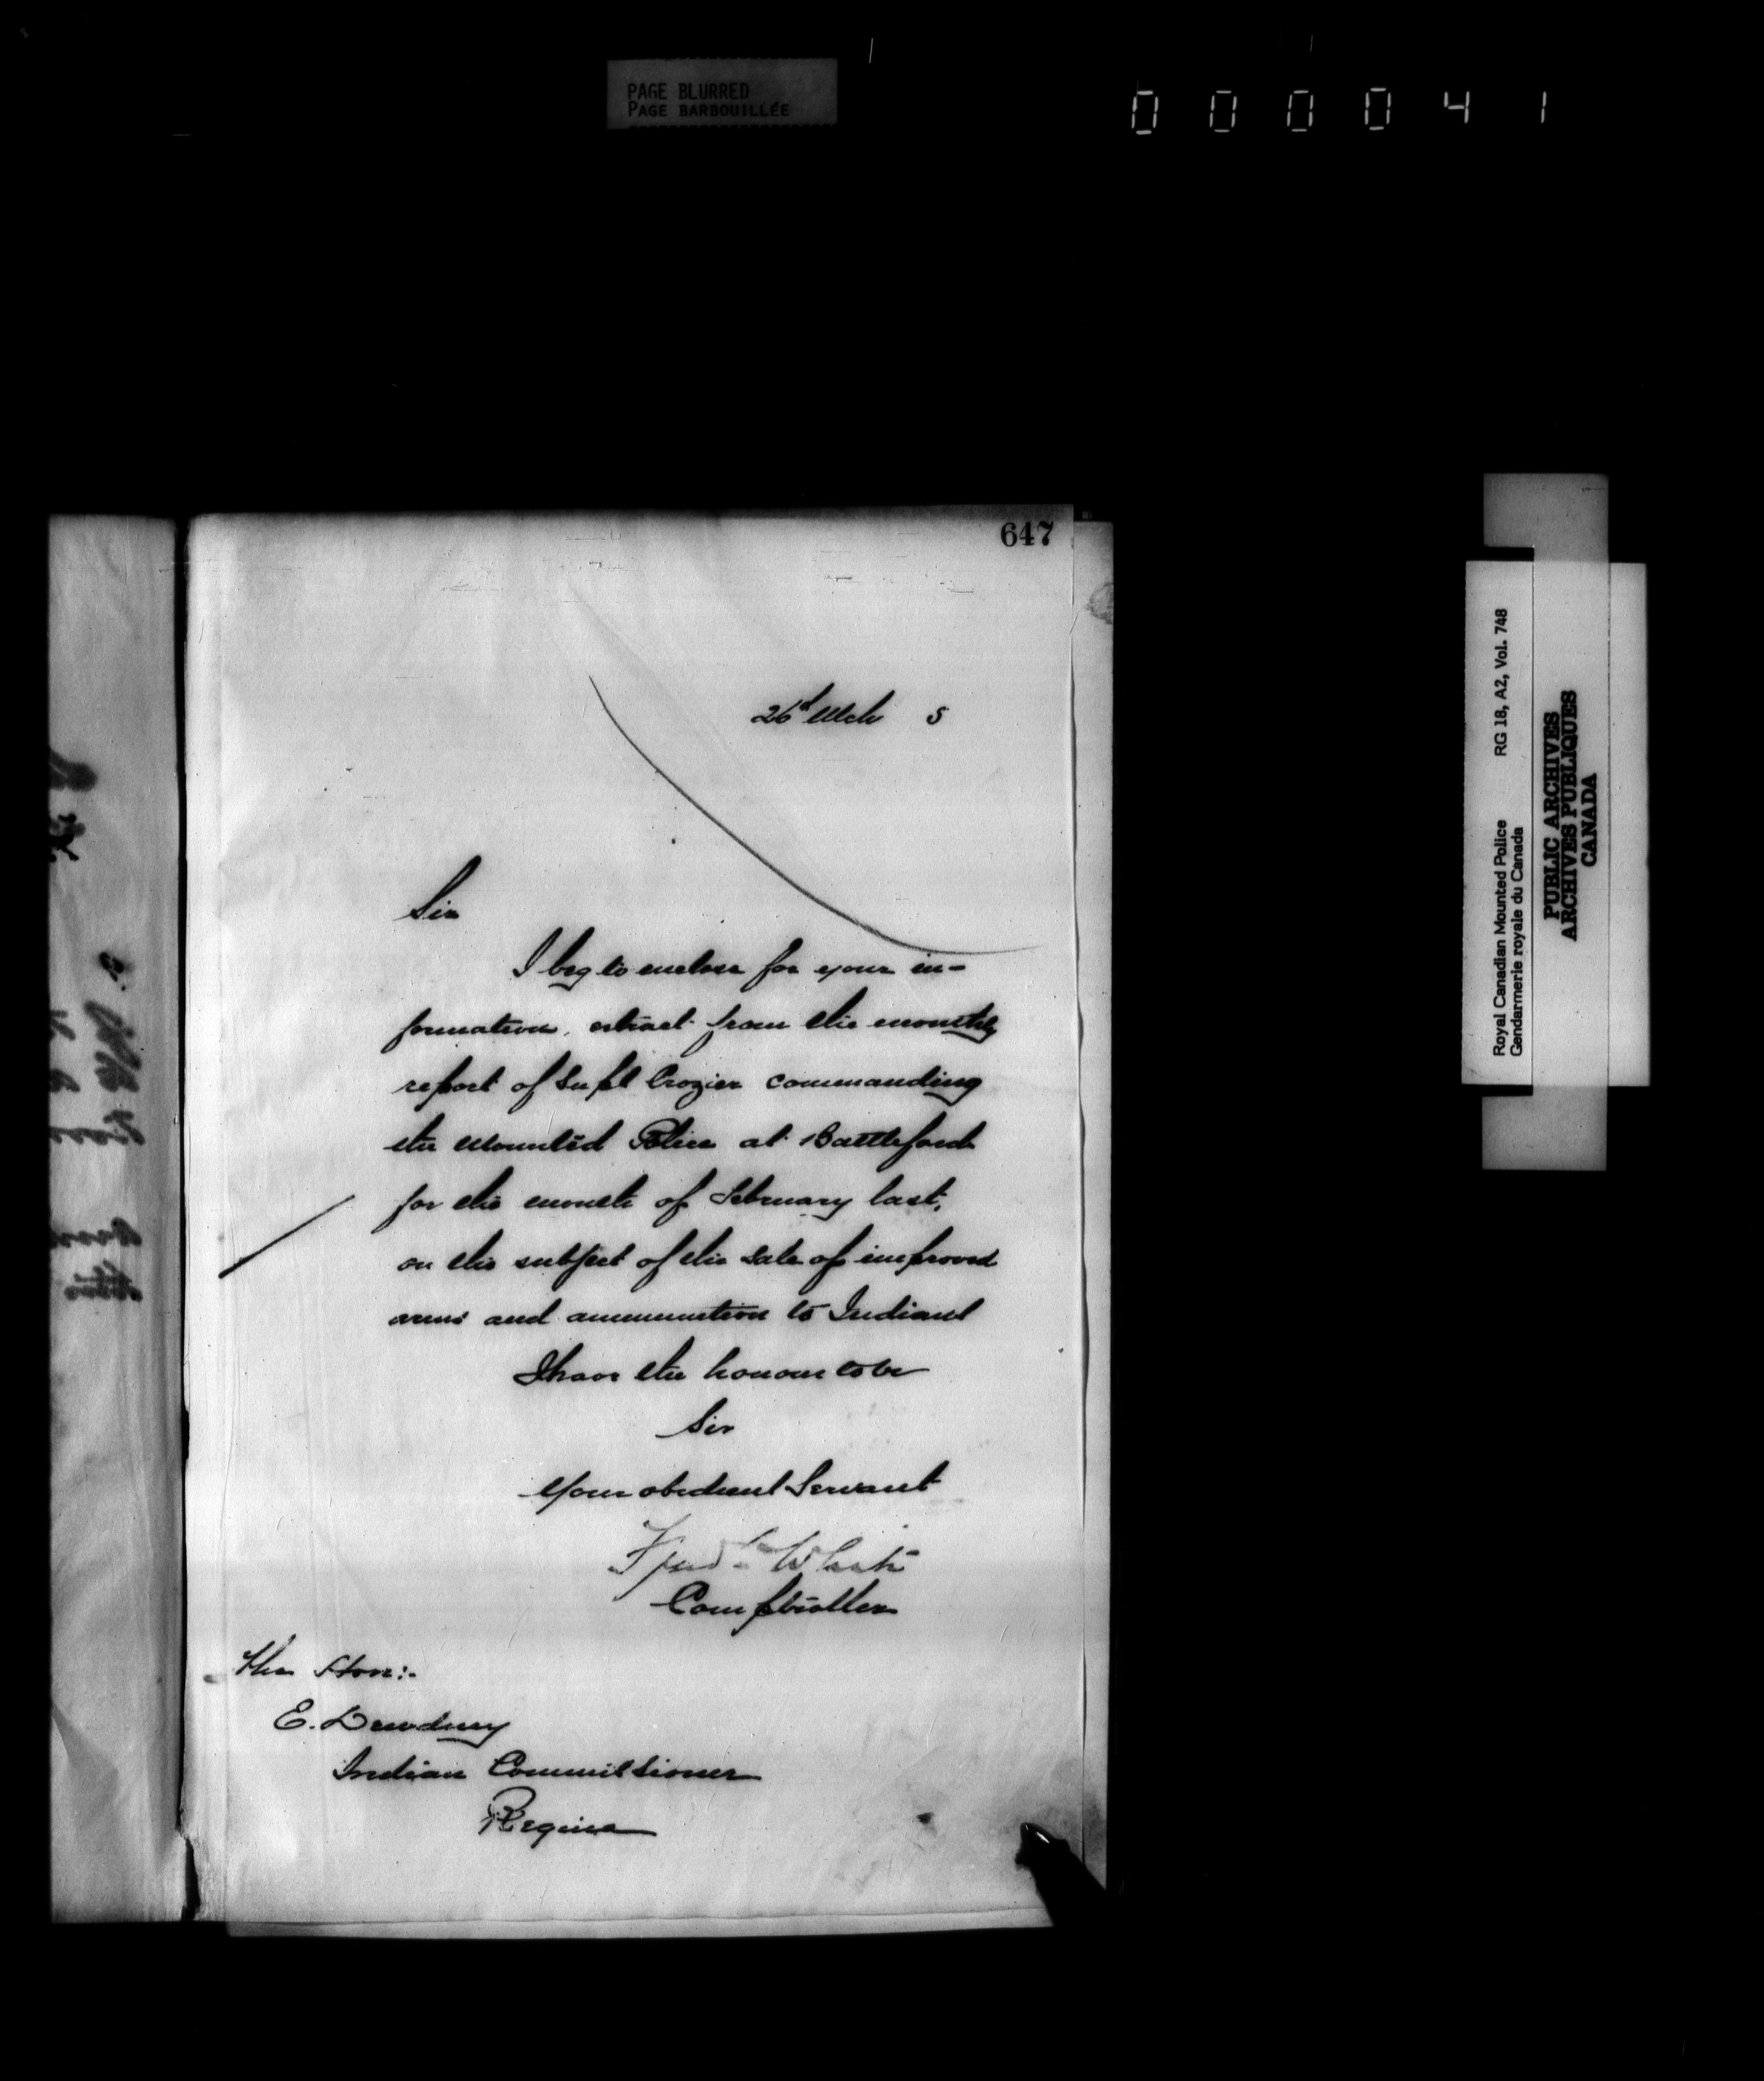 PAGE BLURRED
PAGE BARBOUILLÉE
0 0 0 0 4 1
647
26th Mch 5
Sir
I beg to enclose for your in-
formation, extract from the monthly
report of Supt Crozier commanding
the Mounted Police at Battleford
for the month of February last,
on the subject of the sale of improved
arms and ammunition to Indians
I have the honour to be
Sir
Your obedient Servant
Fred White
Comptroller
The Hon:
E. Dewdney
Indian Commissioner
Regina
Royal Canadian Mounted Police RG 18, A2, Vol. 748
Gendarmerie royale du Canada
PUBLIC ARCHIVES
ARCHIVES PUBLIQUES
CANADA